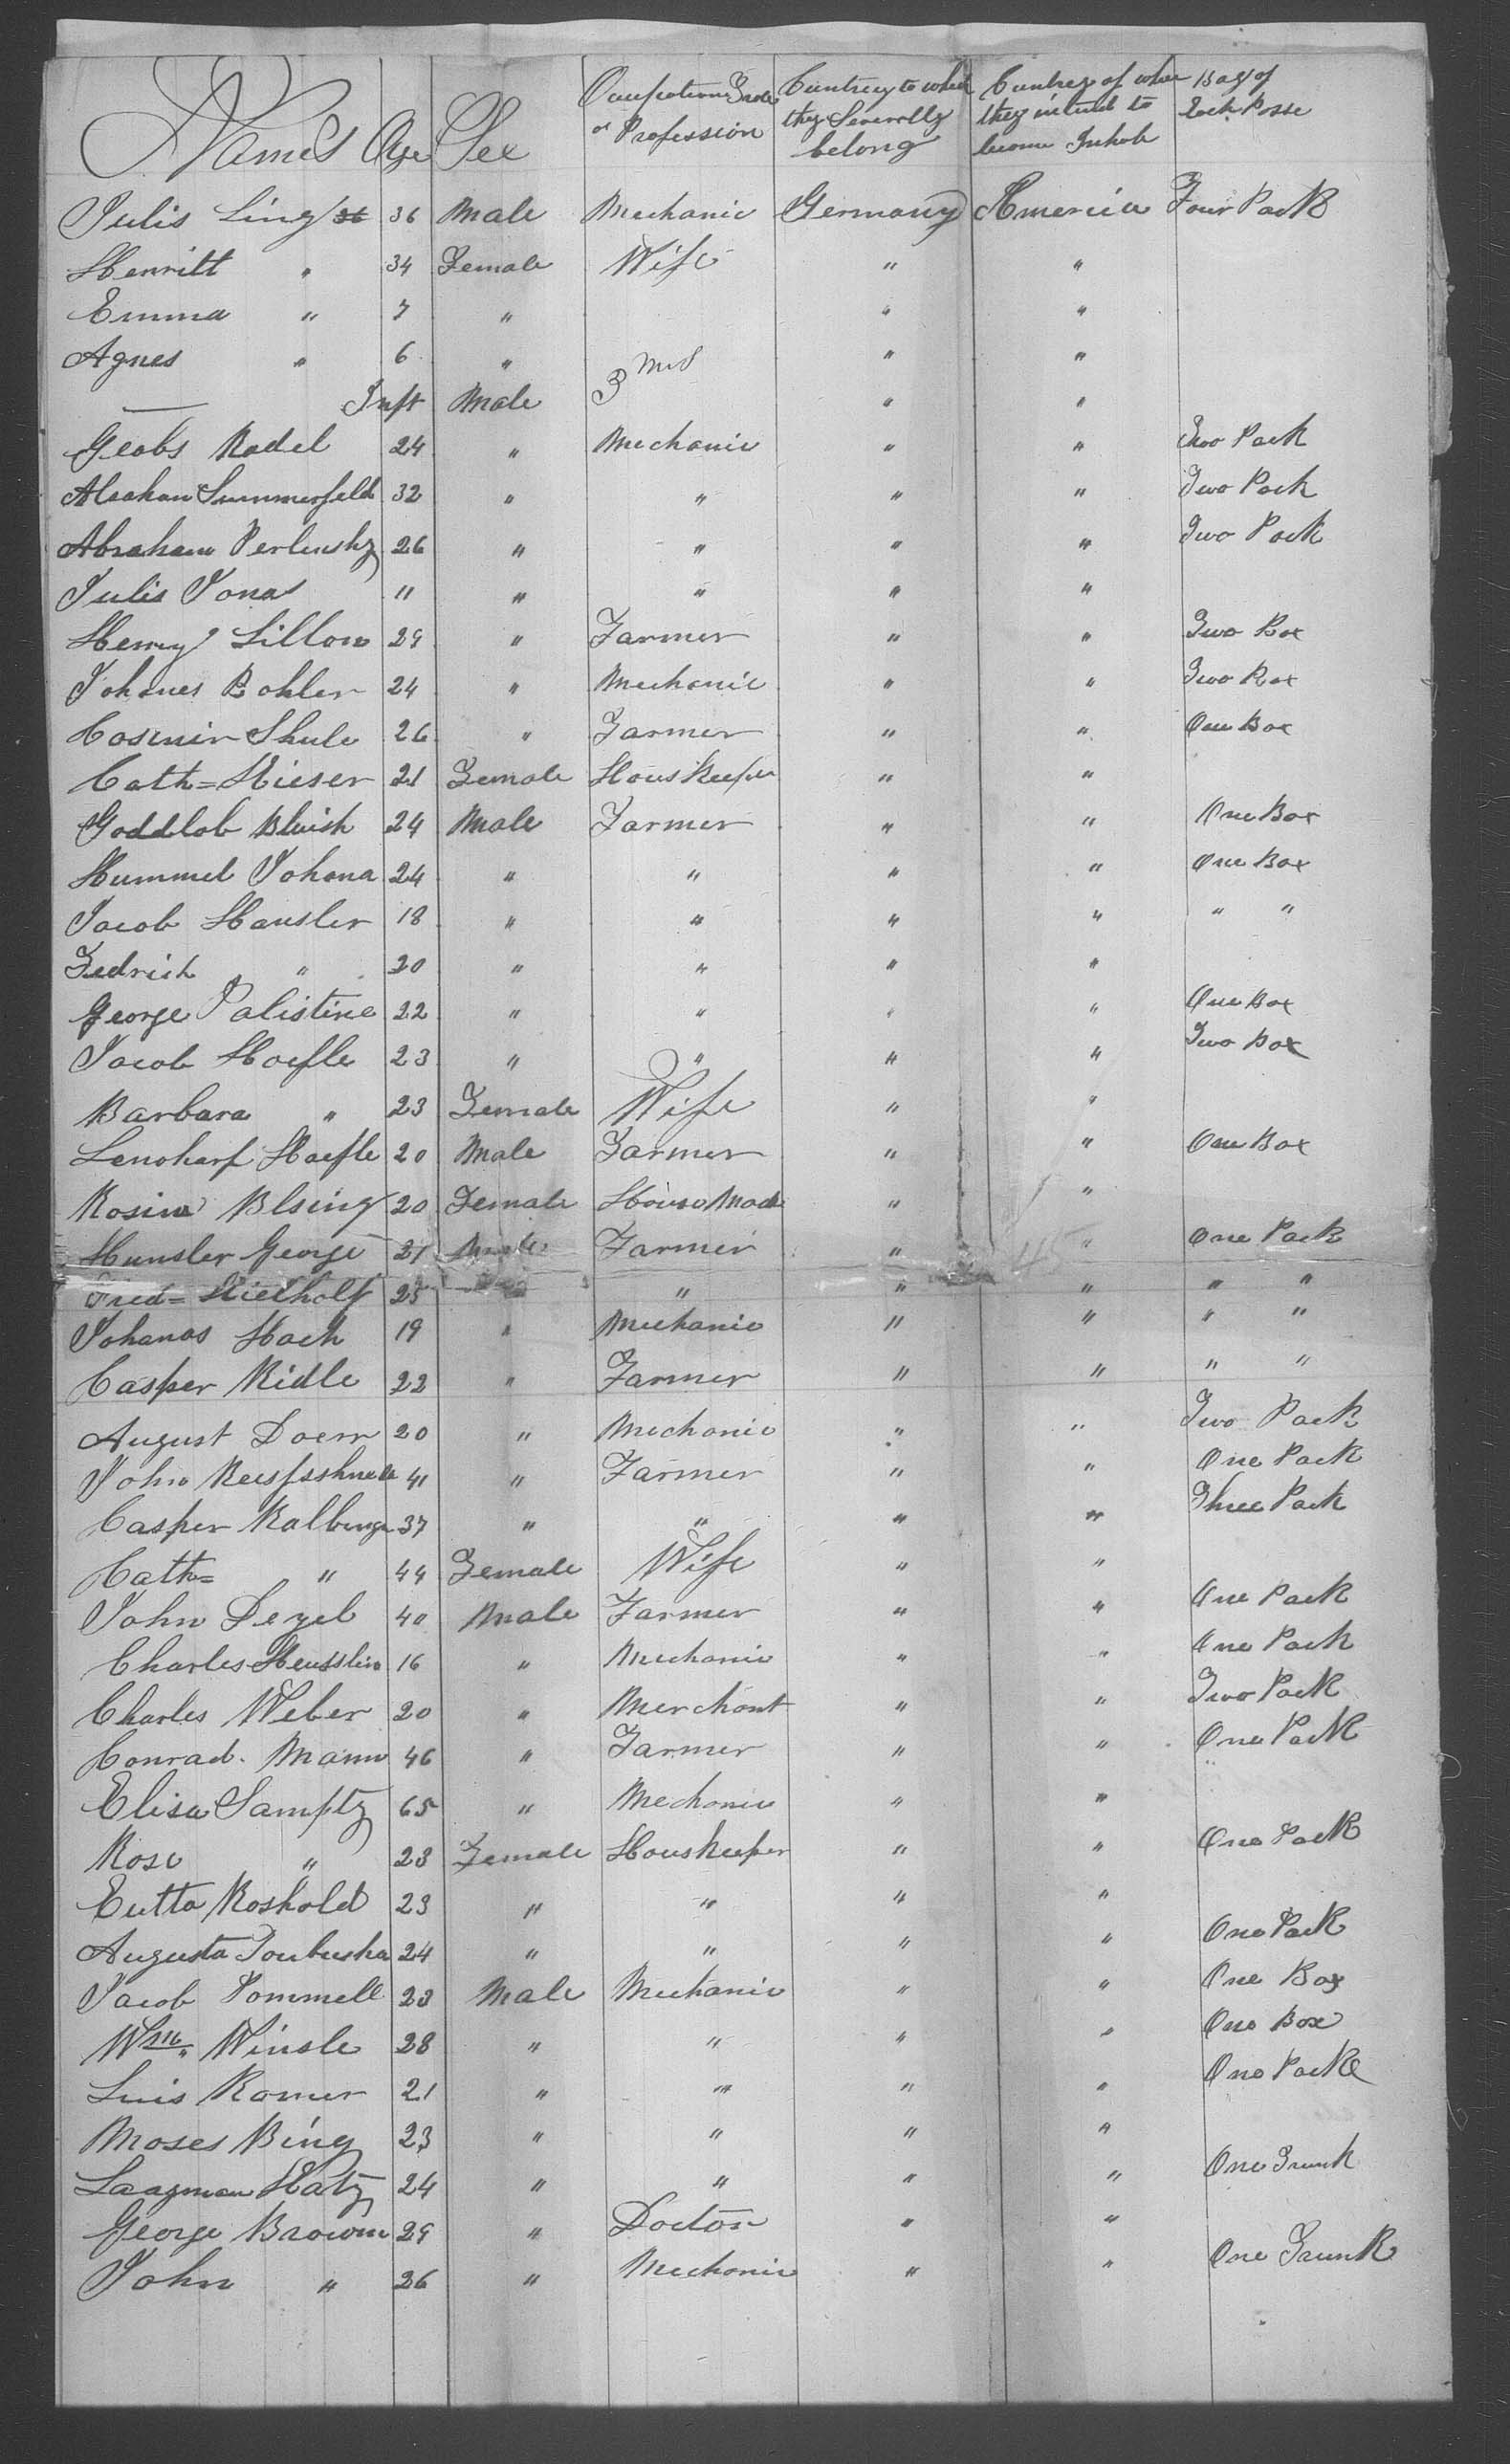 Names Age Sex Ocupation Trade or Profession Cuntrey to which they Severolly belong Cuntrey of when they intend to become Inhob Bag of Each Posse
Julis Ling 36 36 Male Mechanic Germany America Four Pack
Henritt " 34 Female Wife " "
Emma " 7 " " "
Agnes " 6 " " "
— Inft Male 3 Mos " "
Geobs Radel 24 " Mechanic " " Two Pack
Abraham Summerfeld 32 " " " " Two Pack
Abraham Perlinsky 26 " " " " Two Pack
Julis Jonas 11 " " " "
Henry Lillow 29 " Farmer " " Two Box
Johanes Bohler 24 " Mechanic " " Two Box
Cosimir Shule 26 " Farmer " " One Box
Cath= Hieser 21 Female Hous Keeper " "
Goddlob Bluish 24 Male Farmer " " One Box
Hummel Johana 24 " " " " One Box
Jacob Hausler 18 " " " " " "
Fedrich " 20 " " " "
George Palistine 22 " " " " One Box
Jacob Hoefle 23 " " " " Two Box
Barbara " 23 Female Wife " "
Lenoharf Hoefle 20 Male Farmer " " One Box
Rosina Blsing 20 Female House Made " "
Hunsler George 21 Male Farmer " 45 " One Pack
Fred= 25 " " " " "
Johanas Hach 19 " Mechanic " " " "
Casper Ridle 22 " Farmer " " " "
August Doerr 20 " Mechanic " " Two Pack
John 41 " Farmer " " One Pack
Casper Kalbinger 37 " " " " Three Pack
Cath= " 44 Female Wife " "
John Dezel 40 Male Farmer " " One Pack
Charles Heusslin 16 " Mechanic " " One Pack
Charles Weber 20 " Merchant " " Two Pack
Conrad. Mann 46 " Farmer " " One Pack
Elisa Samptz 65 " Mechanic " "
Rose " 23 Female Houskeeper " " One Pack
Eutta Roshold 23 " " " "
Augusta Toubusha 24 " " " " One Pack
Jacob Pommell 23 Male Mechanic " " One Box
Wm. Winsle 28 " " " " One Box
Luis Romer 21 " " " " One Pack
Moses Bing 23 " " " "
Laagman Hatz 24 " " " " One Trunk
George Browm 29 " Doctor " "
John " 26 " Mechanic " " One Trunk